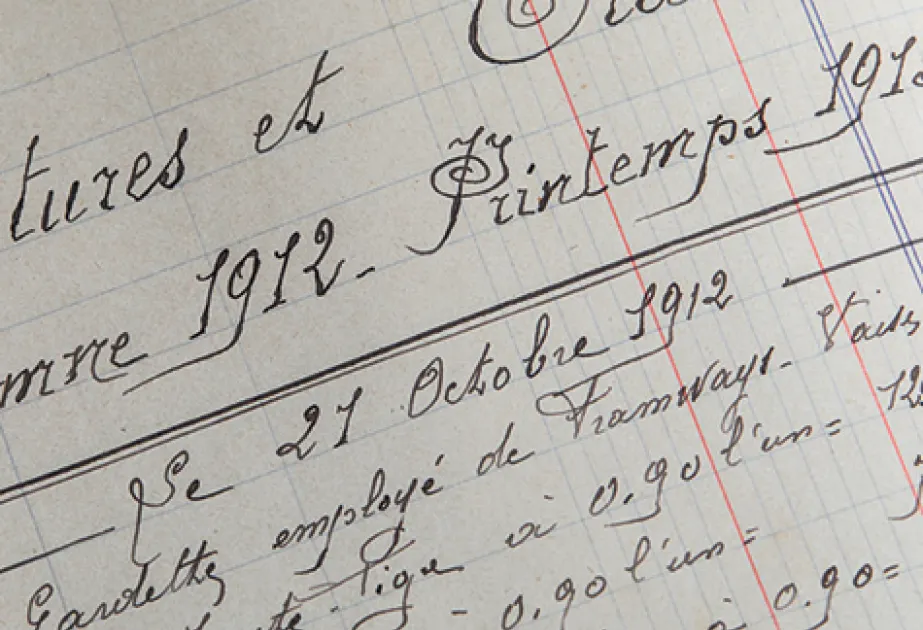 tures et
mne 1912 - Printemps 191
Le 21 Octobre 1912
Gardette employé de Tramways - Vais
Tige à 0.90 l'un = 12
- 0.90 l'un =
à 0.90 =